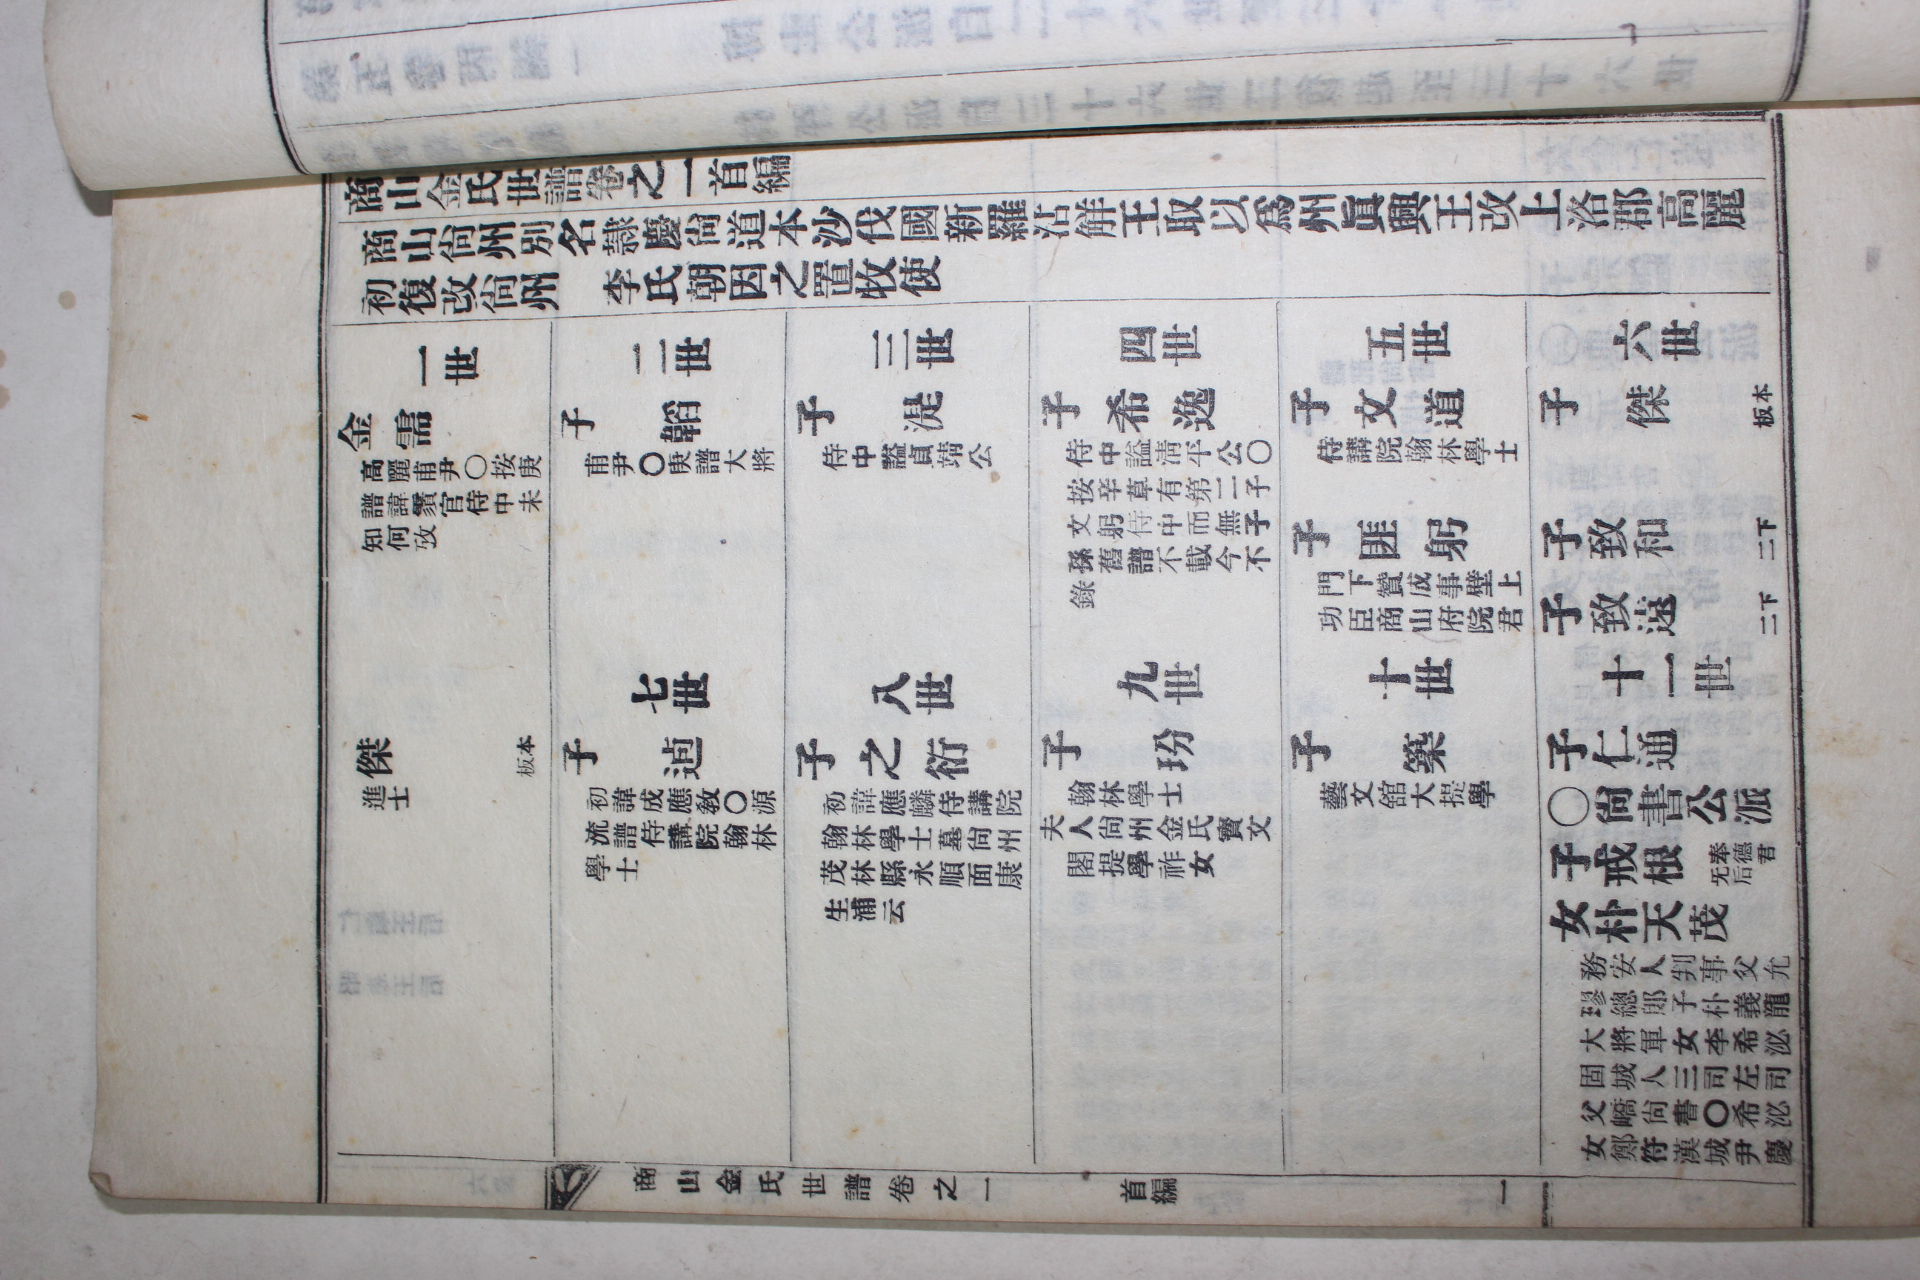 商山金氏世譜卷之一首編
商山尙州別名隷慶尙道本沙伐國新羅沾解王取以爲州眞興王改上洛郡高麗
初復改尙州 李氏朝因之置牧使
一世
金需
高麗甫尹〇按庚
譜諱鬚官侍中未
知何攷
二世
子韜
甫尹〇庚譜大將
三世
子湜
侍中諡貞靖公
四世
子希逸
侍中諡淸平公〇
按辛草有第二子
文躬侍中而無子
孫舊譜不載今不
錄
五世
子文道
侍講院翰林學士
子匪躬
門下贊成事壁上
功臣商山府院君
六世
子傑 板本
子致和 二下
子致遠 二下
傑 板本
進士
七世
子逈
初諱成應敎〇源
流譜侍講院翰林
學士
八世
子之衍
初諱應麟侍講院
翰林學士墓尙州
茂林縣永順面康
生浦云
九世
子玢
翰林學士
夫人尙州金氏寶文
閣提學祚女
十世
子築
藝文館大提學
十一世
子仁通
〇尙書公派
子戒根 奉德君
无后
女朴天茂
務安人判事父允
璆總郞子朴義龍
大將軍女李希泌
固城人三司左司
父嶠尙書〇希泌
女鄭符漢城尹慶
商山金氏世譜卷之一 首編 一